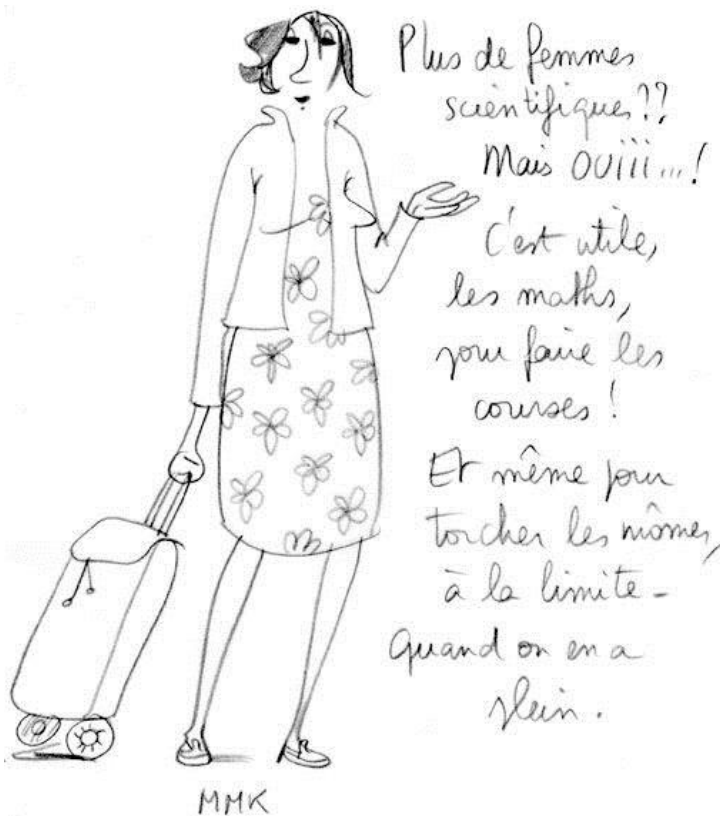 Plus de femmes
scientifiques??
Mais OUiii...!
C'est utile,
les maths,
pour faire les
courses !
Et même pour
torcher les mômes,
à la limite -
Quand on en a
plein.
MMK